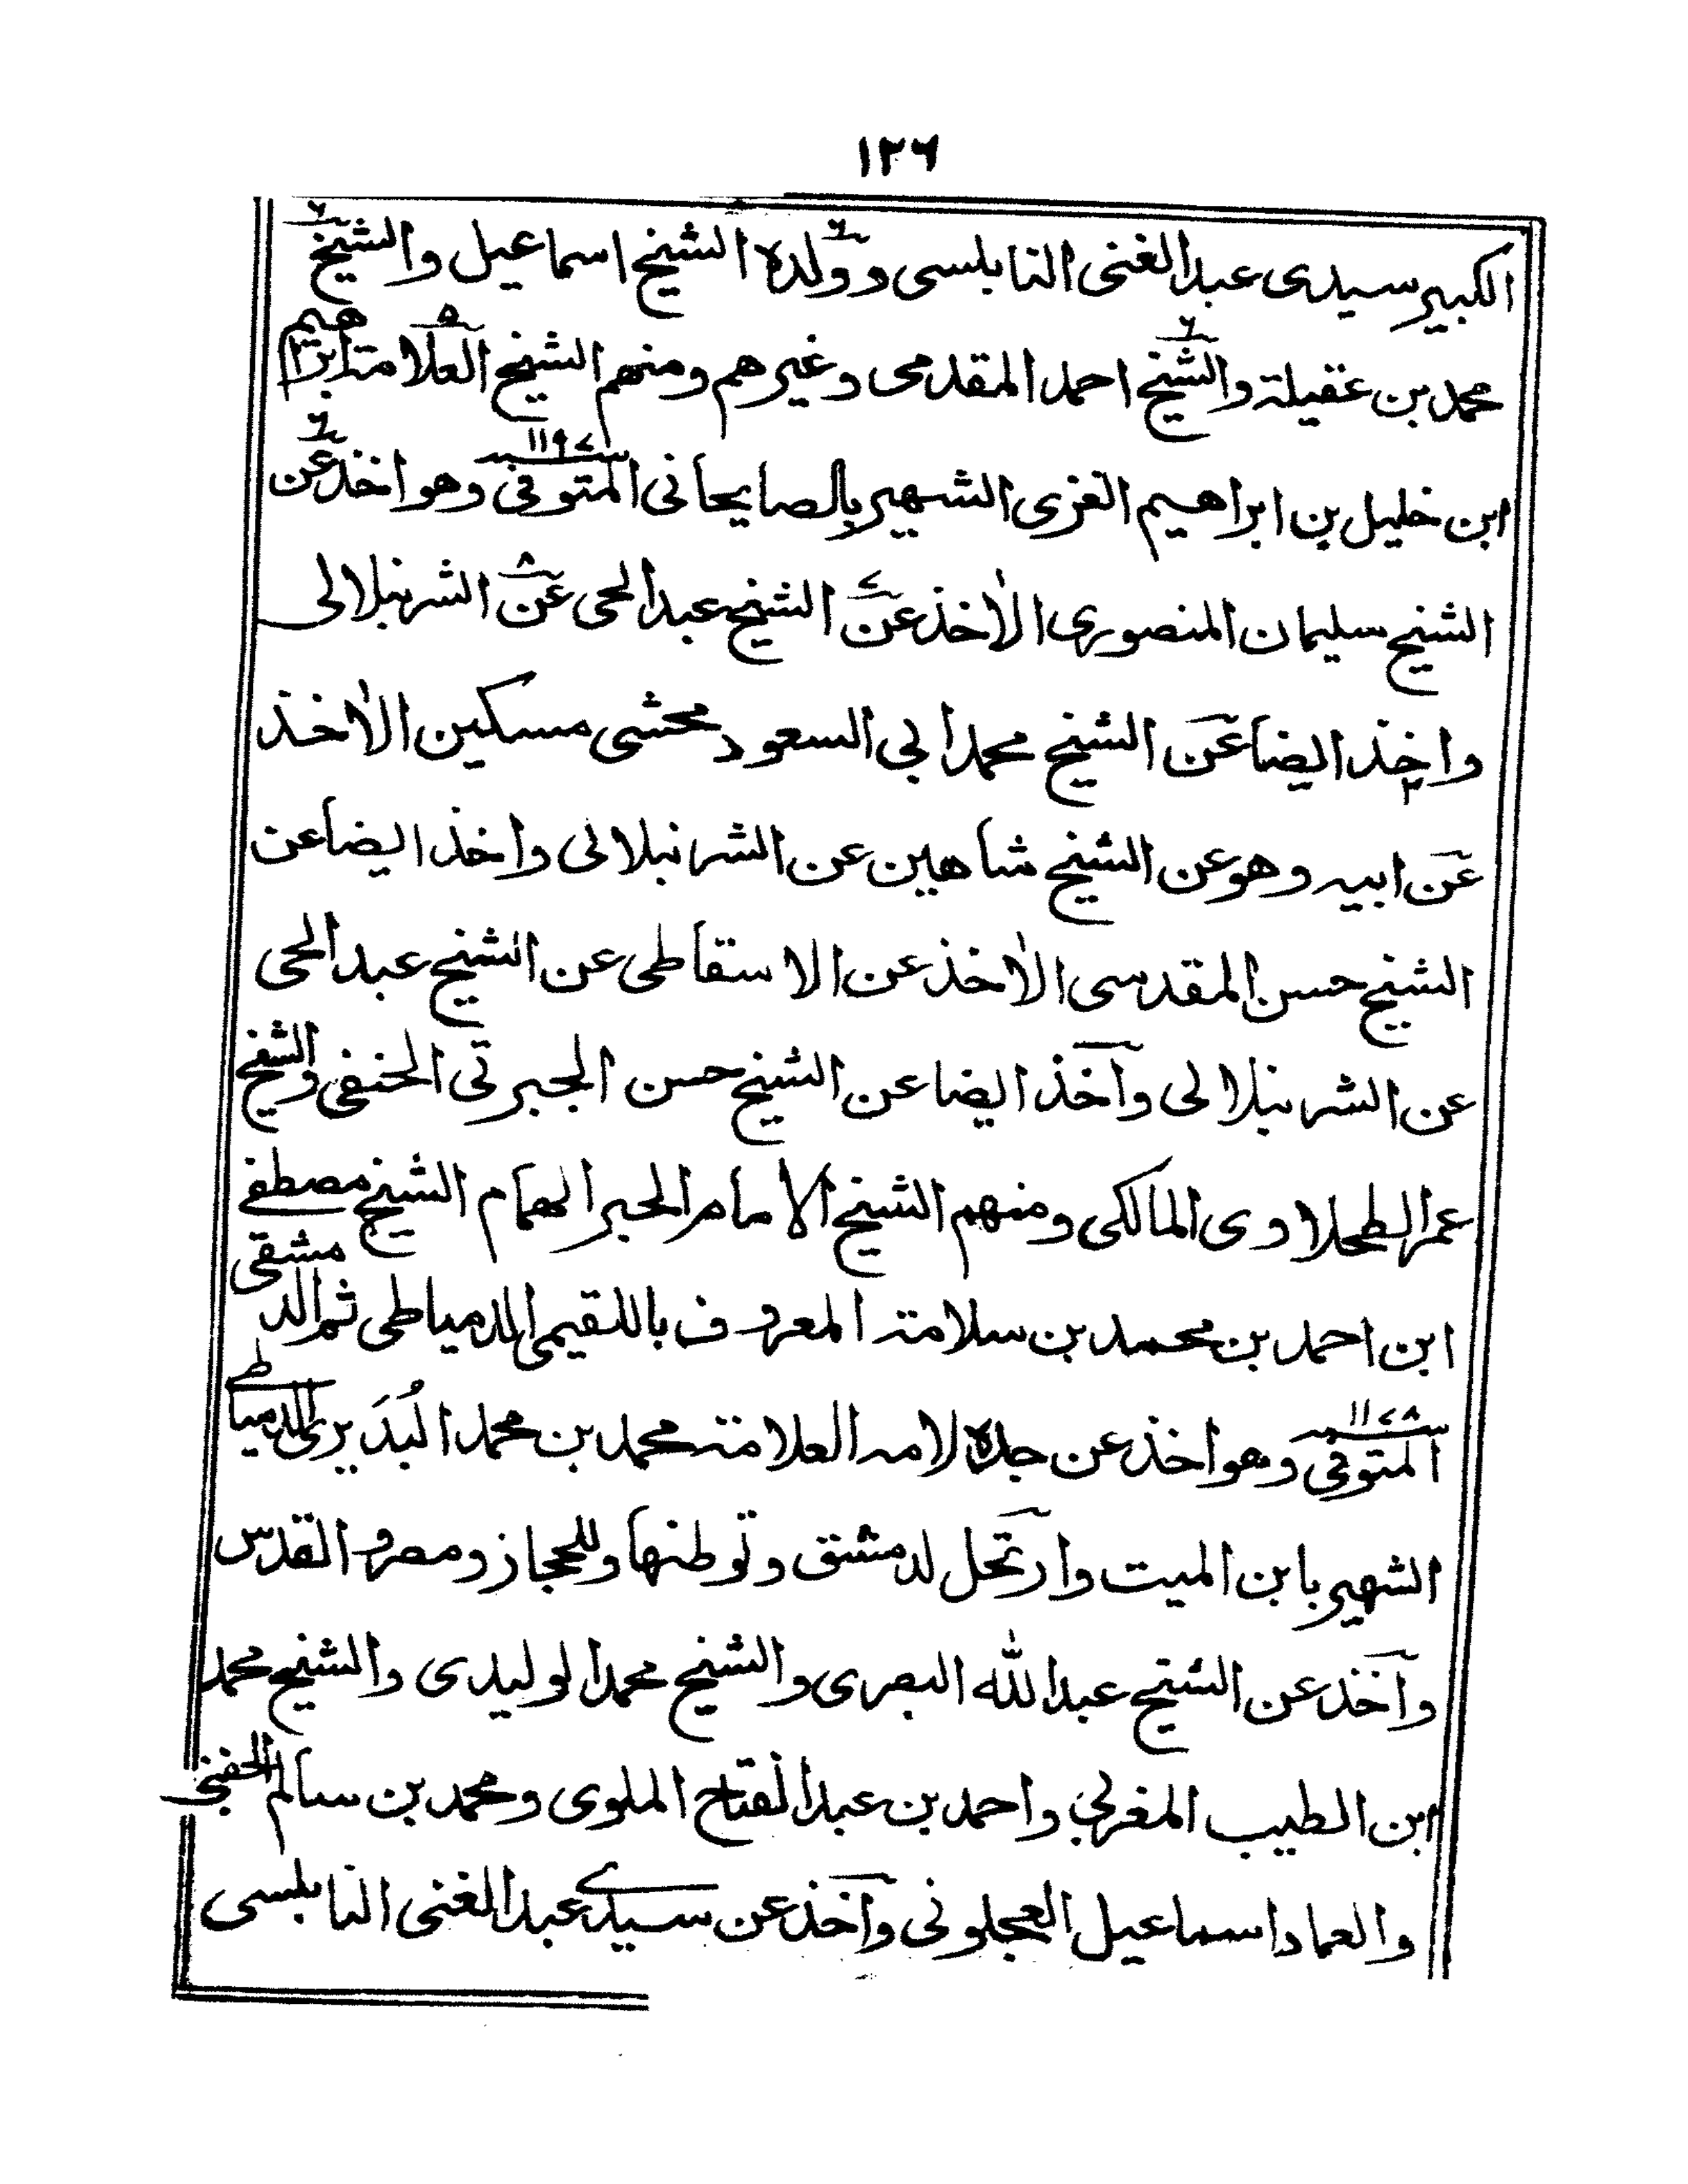 ١٢٦
الكبير سيدى عبد الغنى النابلسى وولده الشيخ اسماعيل والشيخ
محمد بن عقيلة والشيخ احمد المقدمى وغيرهم ومنهم الشيخ العلامة ابراهيم
ابن خليل بن ابراهيم الغزى الشهير بالصايحانى المتوفى سنه ١١٩٧ وهو اخذ عن
الشيخ سليمان المنصورى الاخذ عن الشيخ عبد الحى عن الشرنبلالى
واخذ ايضا عن الشيخ محمد ابى السعود محشى مسكين الاخذ
عن ابيه وهو عن الشيخ شاهين عن الشرنبلالى واخذ ايضا عن
الشيخ حسن المقدسى الاخذ عن الاسقاطى عن الشيخ عبد الحى
عن الشرنبلالى وآخذ ايضا عن الشيخ حسن الجبرتى الحنفى والشيخ
عمر الطحلاوى المالكى ومنهم الشيخ الامام الحبر الهمام الشيخ مصطفے
ابن احمد بن محمد بن سلامة المعروف باللقيمى الدمياطى ثم الدمشقى
المتوفى سنه ١١٧٨ وهو اخذ عن جده لامه العلامة محمد بن محمد البُدَيرى الدمياطے
الشهير بابن الميت وارتحل لدمشق وتوطنها وللحجاز ومصر والقدس
وآخذ عن الشيخ عبد الله البصرى والشيخ محمد الوليدى والشيخ محمد
ابن الطيب المغربى واحمد بن عبد الفتاح الملوى ومحمد بن سالم الحفنى
والعماد اسماعيل العجلونى وآخذ عن سيدے عبد الغنى النابلسى